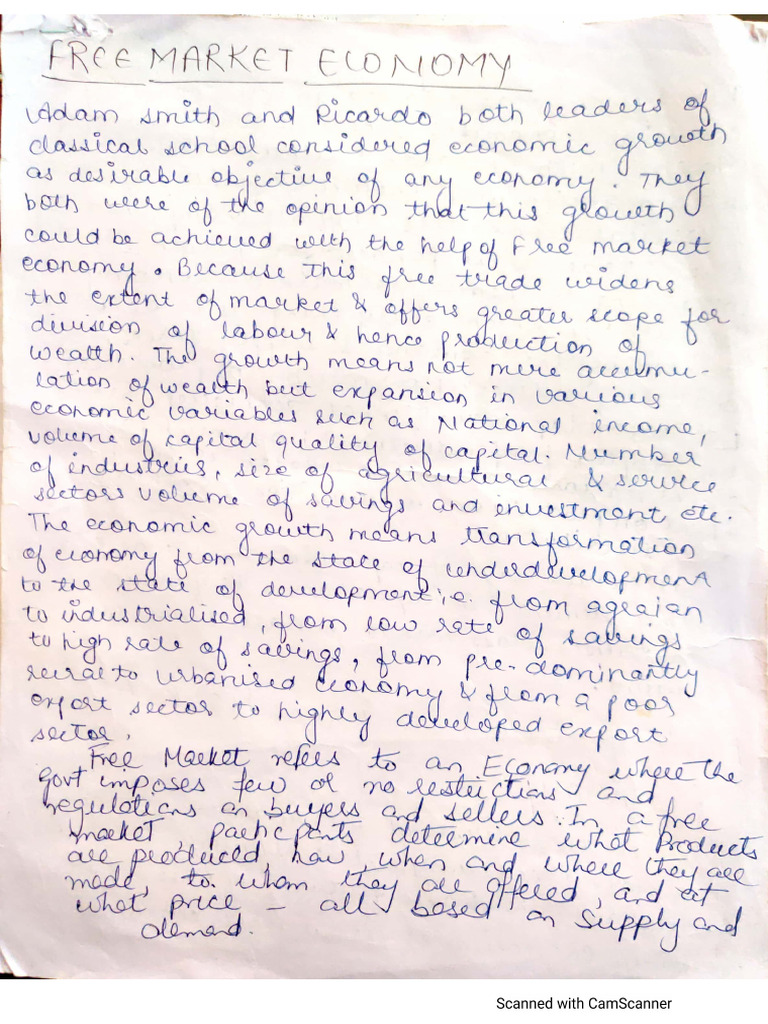 FREE MARKET ECONOMY
Adam Smith and Ricardo both leaders of
classical school considered economic growth
as desirable objective of any economy. They
both were of the opinion that this growth
could be achieved with the help of Free market
economy. Because this free trade widens
the extent of market & offers greater scope for
division of labour & hence production of
wealth. The growth means not mere accumu-
lation of wealth but expansion in various
economic variables such as National income,
volume of capital quality of capital. Number
of industries, size of agricultural & service
sectors volume of savings and investment etc.
The economic growth means transformation
of economy from the state of underdevelopment
to the state of development i.e. from agraian
to industrialised, from low rate of savings
to high rate of savings, from pre-dominantly
rural to urbanised economy & from a poor
export sector to highly developed export
sector.
Free Market refers to an Economy where the
Govt imposes few or no restrictions and
regulations on buyers and sellers. In a free
market, participants determine what Products
are produced, how, when and where they are
made, to whom they are offered, and at
what price – all based on Supply and
demand.
Scanned with CamScanner